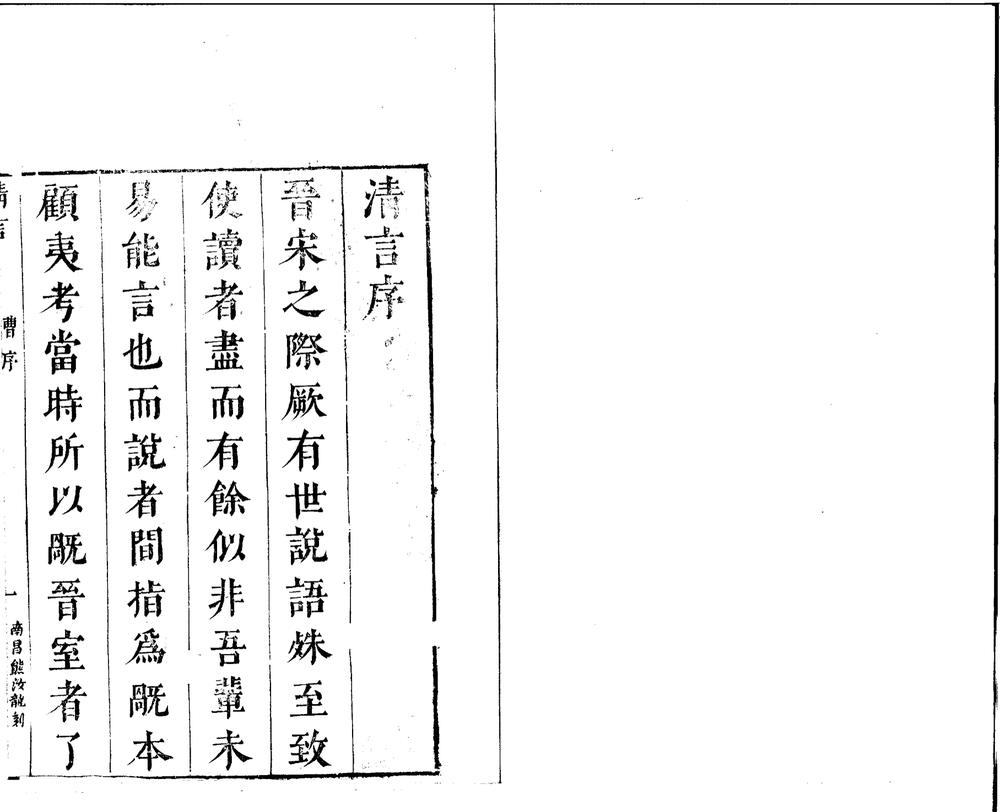 清言序
晉宋之際厥有世說語姝至致
使讀者盡而有餘似非吾輩未
易能言也而說者間指爲厩本
顧夷考當時所以厩晉室者了
清言 曹序 一 南昌熊汝龍刻